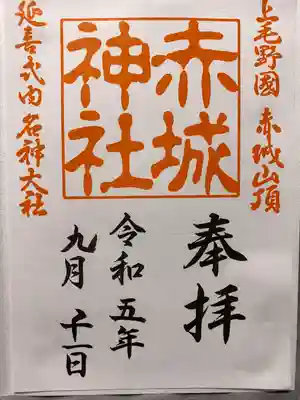 上毛野國 赤城山頂
赤城
神社
延喜式内名神大社
奉拝
令和五年
九月十一日